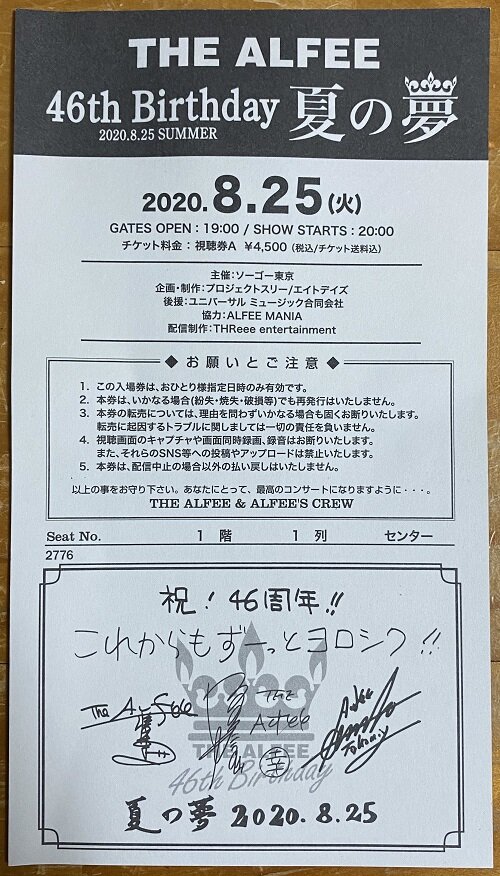 THE ALFEE
46th Birthday 夏の夢
2020.8.25 SUMMER
2020.8.25(火)
GATES OPEN : 19:00 / SHOW STARTS : 20:00
チケット料金 : 視聴券A ¥4,500 (税込/チケット送料込)
主催:ソーゴー東京
企画・制作:プロジェクトスリー/エイトデイズ
後援:ユニバーサル ミュージック合同会社
協力:ALFEE MANIA
配信制作:THReee entertainment
◆ お願いとご注意 ◆
1. この入場券は、おひとり様指定日時のみ有効です。
2. 本券は、いかなる場合(紛失・焼失・破損等)でも再発行はいたしません。
3. 本券の転売については、理由を問わずいかなる場合も固くお断りいたします。
転売に起因するトラブルに関しましては一切の責任を負いません。
4. 視聴画面のキャプチャや画面同時録画、録音はお断りいたします。
また、それらのSNS等への投稿やアップロードは禁止いたします。
5. 本券は、配信中止の場合以外の払い戻しはいたしません。
以上の事をお守り下さい。あなたにとって、最高のコンサートになりますように・・・。
THE ALFEE & ALFEE'S CREW
Seat No. 1 階 1 列 センター
2776
祝! 46周年!!
これからもずーっとヨロシク!!
The Alfee
The Alfee
幸
Alfee
THE ALFEE
46th Birthday
夏の夢 2020.8.25